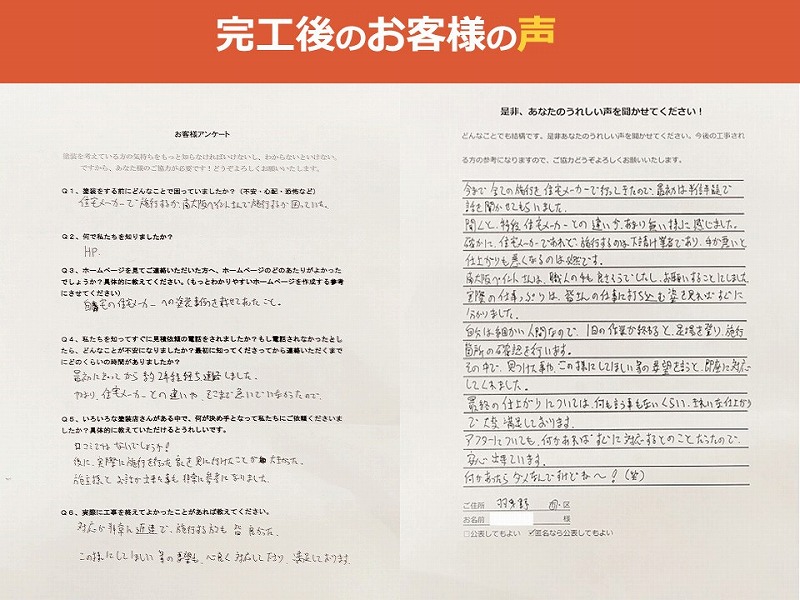 完工後のお客様の声
お客様アンケート
塗装を考えている方の気持ちをもっと知らなければいけないし、わからないといけない。
ですから、あなた様のご協力が必要です！どうぞよろしくお願いいたします。
Q1、塗装をする前にどんなことで困っていましたか？（不安・心配・恐怖など）
住宅メーカーで施行するか、南大阪ペイントさんで施行するか困っていた。
Q2、何で私たちを知りましたか？
HP.
Q3、ホームページを見てご連絡いただいた方へ、ホームページのどのあたりがよかった
でしょうか？具体的に教えてください。（もっとわかりやすいホームページを作成する参考
にさせてください）
自宅の住宅メーカーへの塗装事例を載せてあったこと。
Q4、私たちを知ってすぐに見積依頼の電話をされましたか？もし電話されなかったとし
たら、どんなことが不安になりましたか？最初に知ってくださってから連絡いただくまで
にどのくらいの時間がありましたか？
最初に知ってから約2年程経ち連絡しました。
やはり、住宅メーカーとの違いや、そこまで急いでいなかったので。
Q5、いろいろな塗装店さんがある中で、何が決め手となって私たちにご依頼くださいま
したか？具体的に教えていただけるとうれしいです。
口コミではないでしょうか！
後に、実際に施行を行った家を見に行けたことが大きかった。
施主様とお話が出来た事も非常に参考になりました。
Q6、実際に工事を終えてよかったことがあれば教えてください。
対応が非常に迅速で、施行する方も皆良かった。
この様にしてほしい等の要望も、心良く対応して下さり、満足しております。
是非、あなたのうれしい声を聞かせてください！
どんなことでも結構です。是非あなたのうれしい声を聞かせてください。今後の工事され
る方の参考になりますので、ご協力どうぞよろしくお願いいたします。
今まで全ての施行を住宅メーカーで行ってきたので、最初は半信半疑で
話を聞かせてもらいました。
聞くと、特段住宅メーカーとの違いが、あまり無い様に感じました。
確かに、住宅メーカーであれど、施行するのは下請け業者であり、中が悪いと
仕上がりも悪くなるのは必然です。
南大阪ペイントさんは、職人の中も良さそうでしたし、お願いすることにしました。
実際の仕事っぷりは、皆さんの仕事に打ち込む姿を見ればすぐに
分かりました。
自分は細かい人間なので、1回の作業が終わると、足場を登り、施行
箇所の確認を行います。
その中で、見つけた事や、この様にしてほしい等の要望を言うと、即座に対応
してくれました。
最終の仕上がりについては、何も言う事もないくらい、きれいな仕上がり
で大変満足しております。
アフターについても、何かあればすぐに対応するとのことだったので、
安心出来ています。
何かあったら タノんでますけどね〜！(笑)
ご住所 羽曳野 市・区
お名前 様
□公表してもよい ☑匿名なら公表してもよい